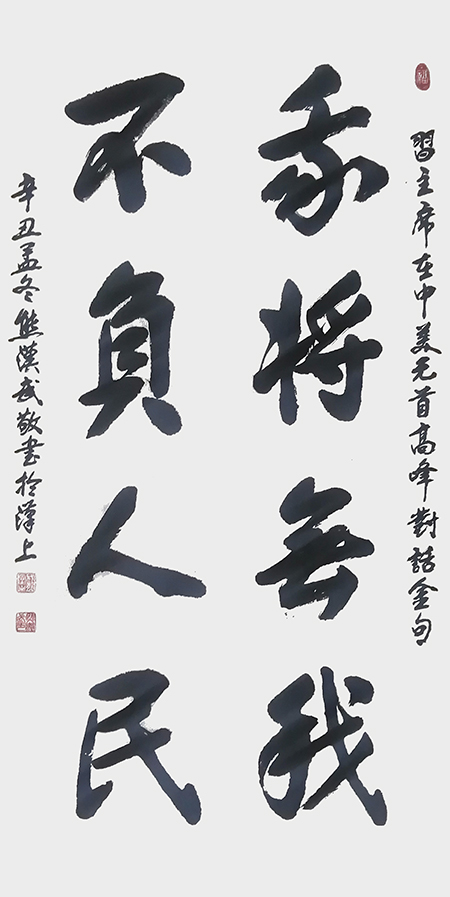 習主席在中美元首高峰對話金句
我將無我
不負人民
辛丑孟冬熊漢武敬書於漢上